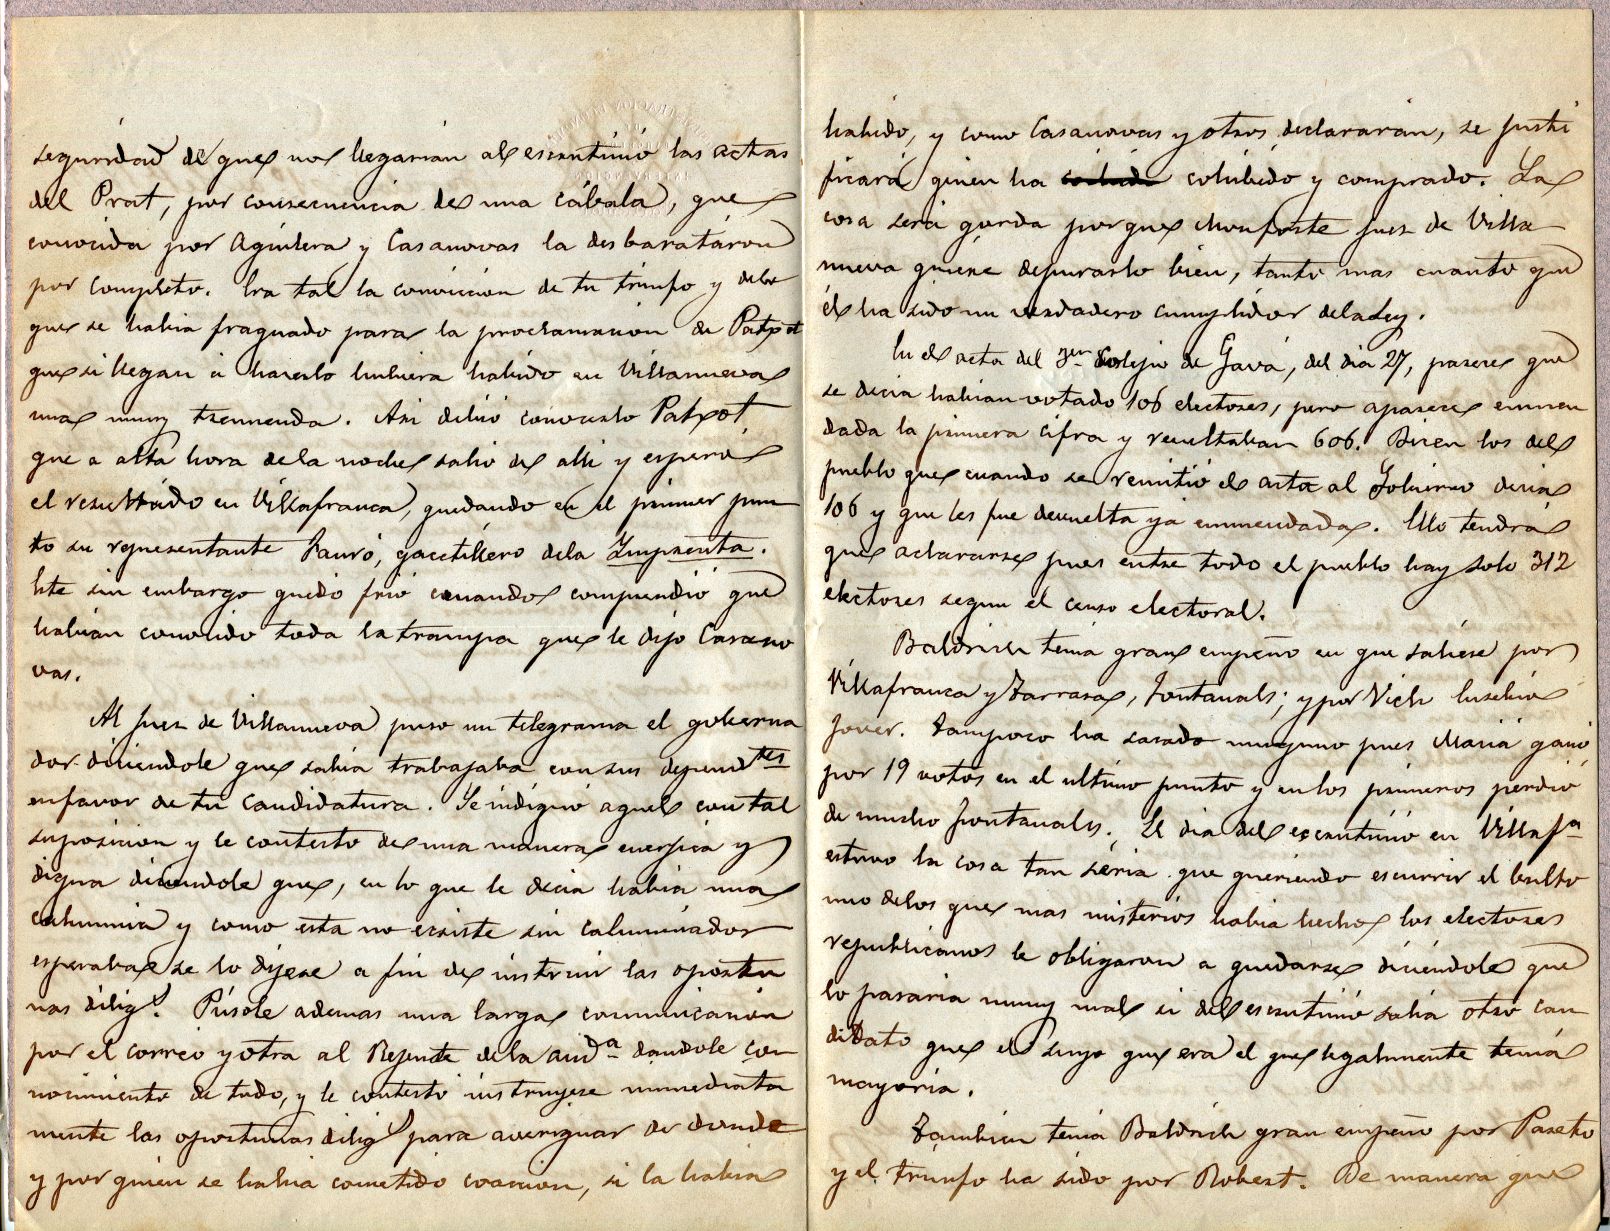 seguridad de que no llegarian al escrutinio las actas
del Prat, por consecuencia de una cábala, que
conocida por Aguilera y Casanovas la desbarataron
por completo. Era tal la conviccion de tu triunfo y de lo
que se habia fraguado para la proclamacion de Patxot
que si llegan á hacerlo hubiera habido en Villanueva
una muy tremenda. Asi debió conocerlo Patxot,
que a alta hora dela noche salió de alli y esperó
el resultado en Villafranca, quedando en el primer pun
to su representante Fauró, gacetillero dela Imprenta.
Este sin embargo quedó frio cuando comprendió que
habian conocido toda la trampa que le dijo Casano
vas.
Al Juez de Villanueva puso un telegrama el goberna
dor diciendole que sabia trabajaba con sus depend.tes
enfavor de tu candidatura. Se indignó aquel con tal
suposicion y le contestó de una manera energica y
digna diciendole que, en lo que le decia habia una
calumnia y como esta no existe sin calumniador
esperaba se lo dijese a fin de instruir las oportu
nas dilig.s Púsole ademas una larga comunicacion
por el correo y otra al Rejente dela aud.a dandole con
nocimiento de todo, y le contestó instruyese inmediata
mente las oportunas dilig.s para averiguar de donde
y por quien se habia cometido coaccion, si la habia
habido, y como Casanovas y otros declararán, se justi
ficará quien ha cohibido y comprado. La
cosa será gorda porque Monforte Juez de Villa
nueva quiere depurarlo bien, tanto mas cuanto que
él ha sido un verdadero cumplidor dela Ley.
En el acta del 3er Colejio de Gavá, del dia 27, parece que
se decia habian votado 106 electores, pero aparece enmen
dada la primera cifra y resultaban 606. Dicen los del
pueblo que cuando se remitió el acta al Gobierno decia
106 y que les fue devuelta ya enmendada. Ello tendrá
que aclararse pues entre todo el pueblo hay solo 312
electores segun el censo electoral.
Baldrich tenia gran empeño en que saliese por
Villafranca y Tarrasa, Fontanals; y por Vich Eusebio
Jover. Tampoco ha sacado ninguno pues Mariá ganó
por 19 votos en el ultimo punto y en los primeros perdió
de mucho Fontanals. El dia del escrutinio en Villaf.a
estuvo la cosa tan séria que queriendo escurrir el bulto
uno delos que mas misterios habia hecho los electores
republicanos le obligaron a quedarse diciéndole que
lo pasaria muy mal si del escrutinio salia otro can
didato que el suyo que era el que legalmente tenia
mayoria.
Tambien tenia Baldrich gran empeño por Pareto
y el triunfo ha sido por Robert. De manera que